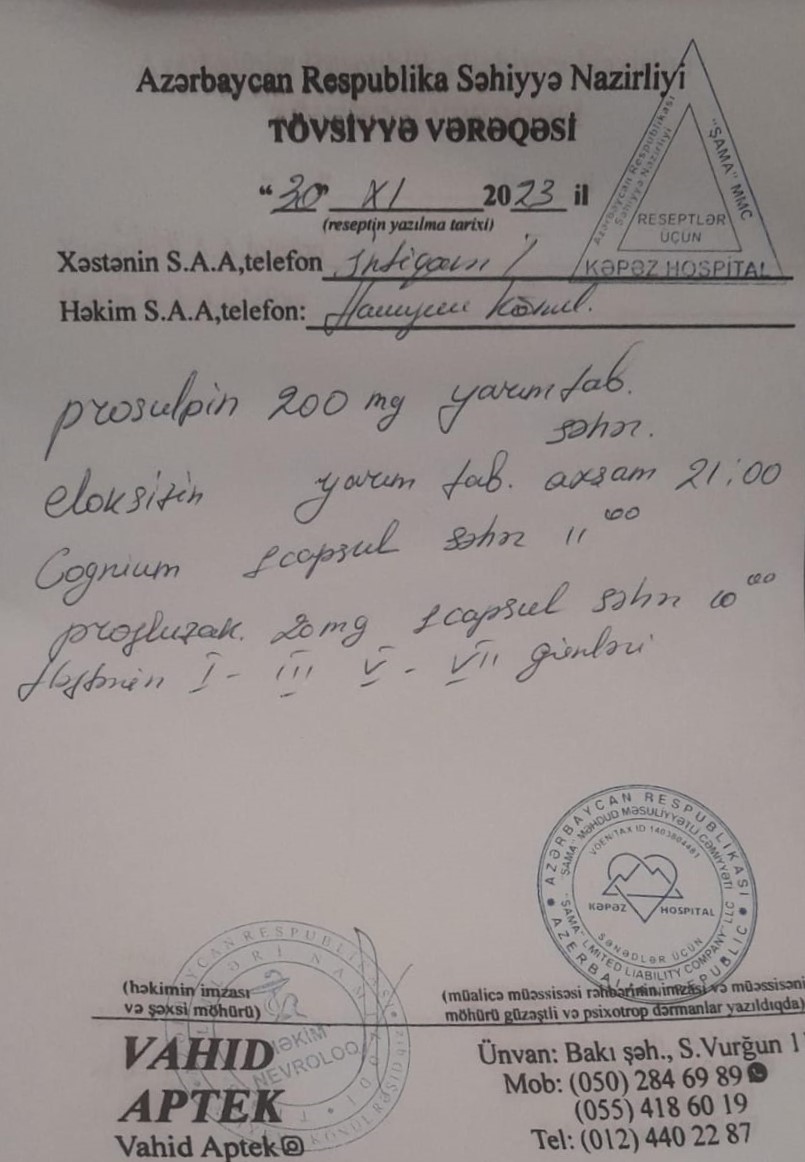 Azərbaycan Respublika Səhiyyə Nazirliyi
TÖVSİYYƏ VƏRƏQƏSİ
"30" XI 2023 il
(reseptin yazılma tarixi)
Azərbaycan Respublikası
Səhiyyə Nazirliyi
"ŞAMA" MMC
RESEPTLƏR
ÜÇÜN
KƏPƏZ HOSPİTAL
Xəstənin S.A.A,telefon
Həkim S.A.A,telefon: Könul.
prosulpin 200 mg yarım tab.
səhər.
yarım tab. axşam 21:00
Cognium 1 capsul səhər 11 00
profluzak. 20mg 1 capsul səhər 10 00
Həftənin I - III V - VII günləri
AZƏRBAYCAN RESPUBLİKASI
"ŞAMA" MƏHDUD MƏSULİYYƏTLİ CƏMİYYƏTİ
VOEN/TAX ID 1403804481
KƏPƏZ HOSPITAL
SƏNƏDLƏR ÜÇÜN
"ŞAMA" LMITED LIABILITY COMPANY LLC
AZERBAIJAN REPUBLIC
(həkimin imzası
və şəxsi möhürü)
HƏKİM
NEVROLOQ
(müalicə müəssisəsi rəhbərinin imzası və müəssisəni
möhürü güzəştli və psixotrop dərmanlar yazıldıqda)
VAHID
APTEK
Vahid Aptek
Ünvan: Bakı şəh., S.Vurğun 1
Mob: (050) 284 69 89
(055) 418 60 19
Tel: (012) 440 22 87